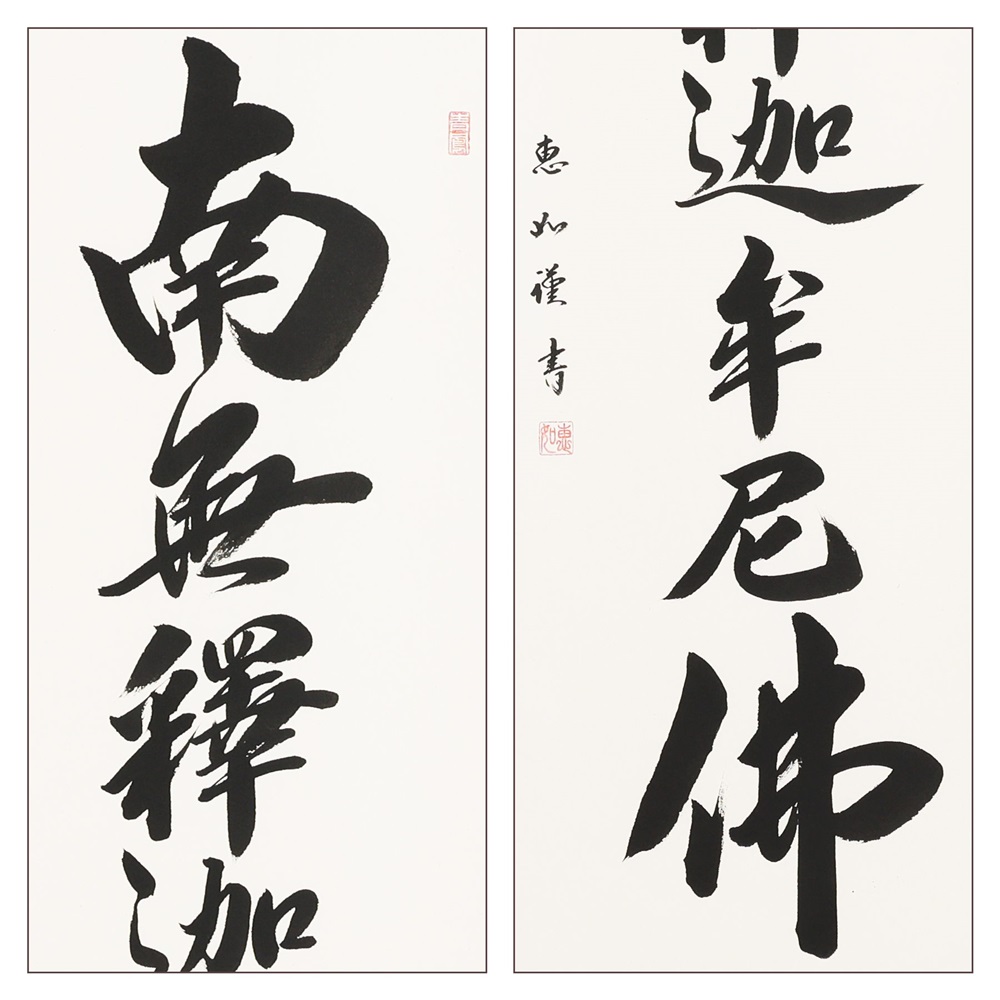 南無釋迦
迦牟尼佛
恵如謹書
恵如